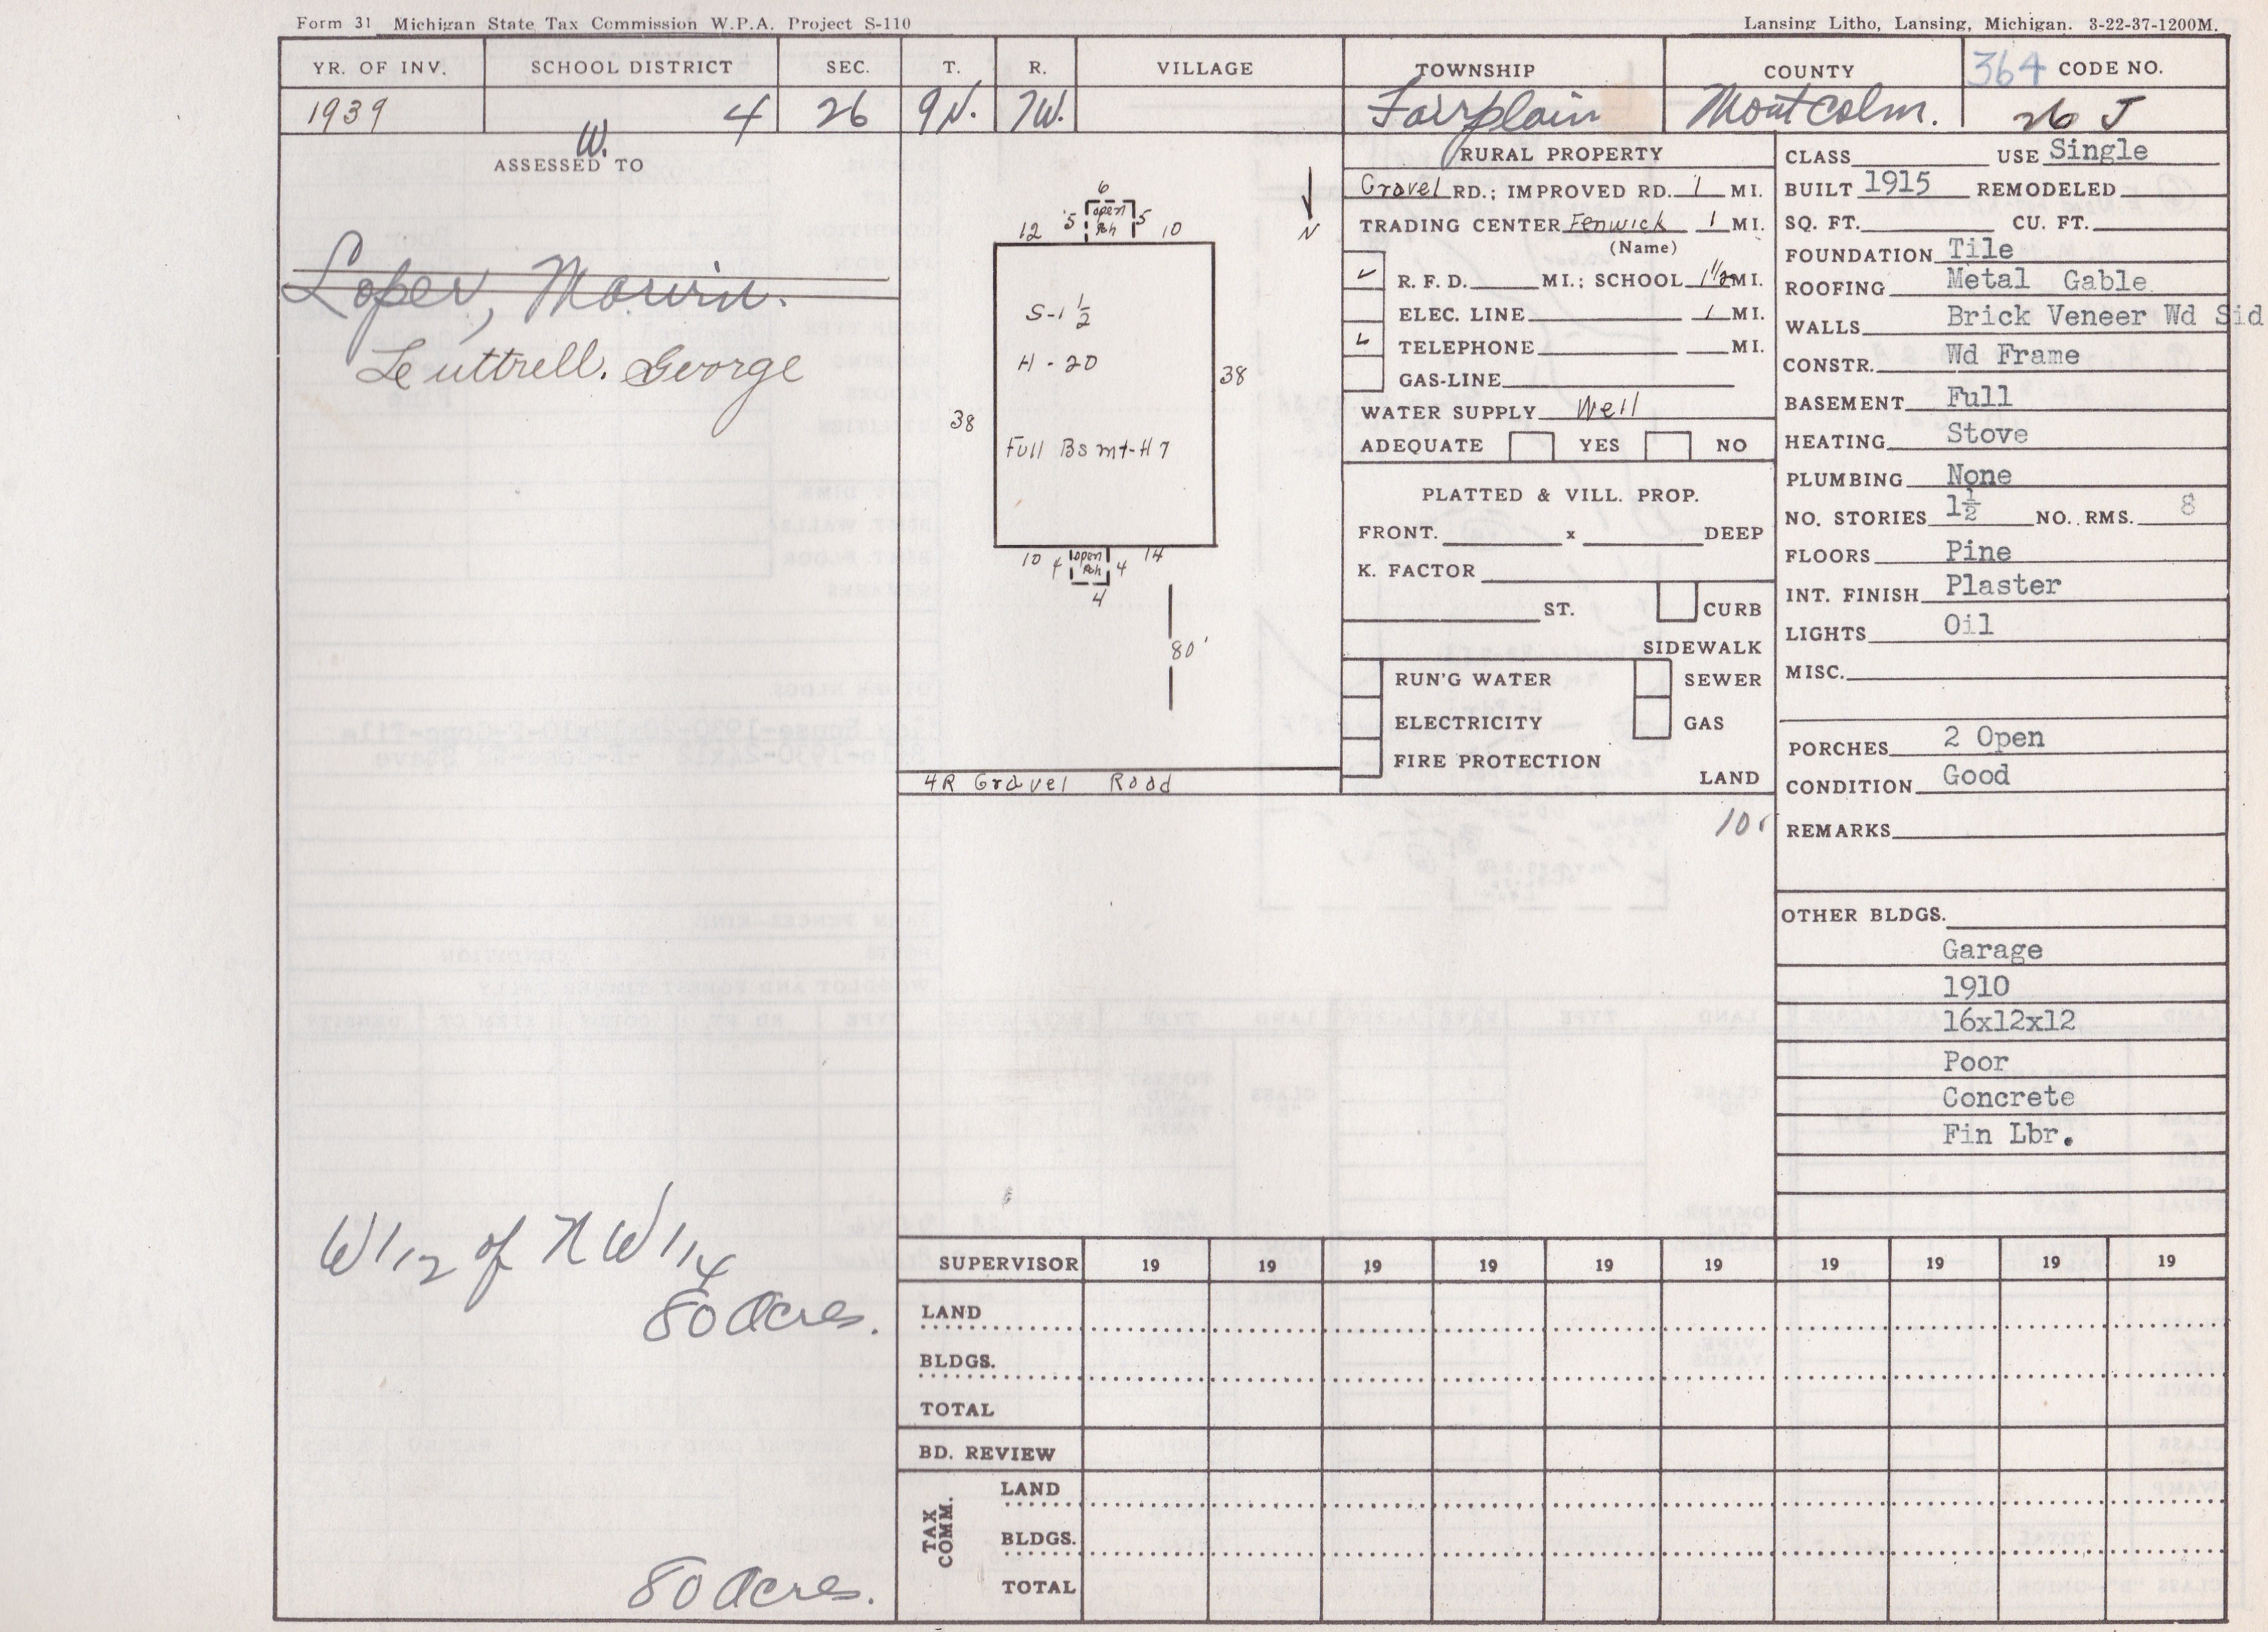 Form 31 Michigan State Tax Commission W.P.A. Project S-110
Lansing Litho, Lansing, Michigan. 3-22-37-1200M.
YR. OF INV. SCHOOL DISTRICT SEC. T. R. VILLAGE TOWNSHIP COUNTY 364 CODE NO.
1939 4 26 9N. 7W. Fairplain Montcalm. 26 J
W.
ASSESSED TO
Loper, Marvin.
Leuttrell. George
W 1/2 of N W 1/4
80 Acres.
80 Acres.
6
12 5 open Pch 5 10
N
S-1 1/2
H - 20
38
38
Full Bsmt-H7
10 4 open Pch 4 14
4
80'
4R Gravel Road
RURAL PROPERTY
Gravel RD.; IMPROVED RD. 1 MI.
TRADING CENTER Fenwick 1 MI.
(Name)
R. F. D. MI.; SCHOOL 1 1/2 MI.
ELEC. LINE 1 MI.
TELEPHONE MI.
GAS-LINE
WATER SUPPLY Well
ADEQUATE YES NO
PLATTED & VILL. PROP.
FRONT. x DEEP
K. FACTOR
ST. CURB
SIDEWALK
RUN'G WATER SEWER
ELECTRICITY GAS
FIRE PROTECTION
LAND
CLASS USE Single
BUILT 1915 REMODELED
SQ. FT. CU. FT.
FOUNDATION Tile
ROOFING Metal Gable
WALLS Brick Veneer Wd Sid
CONSTR. Wd Frame
BASEMENT Full
HEATING Stove
PLUMBING None
NO. STORIES 1½ NO. RMS. 8
FLOORS Pine
INT. FINISH Plaster
LIGHTS Oil
MISC.
PORCHES 2 Open
CONDITION Good
REMARKS
OTHER BLDGS.
Garage
1910
16x12x12
Poor
Concrete
Fin Lbr.
SUPERVISOR 19 19 19 19 19 19 19 19 19 19
LAND
BLDGS.
TOTAL
BD. REVIEW
TAX COMM.
LAND
BLDGS.
TOTAL